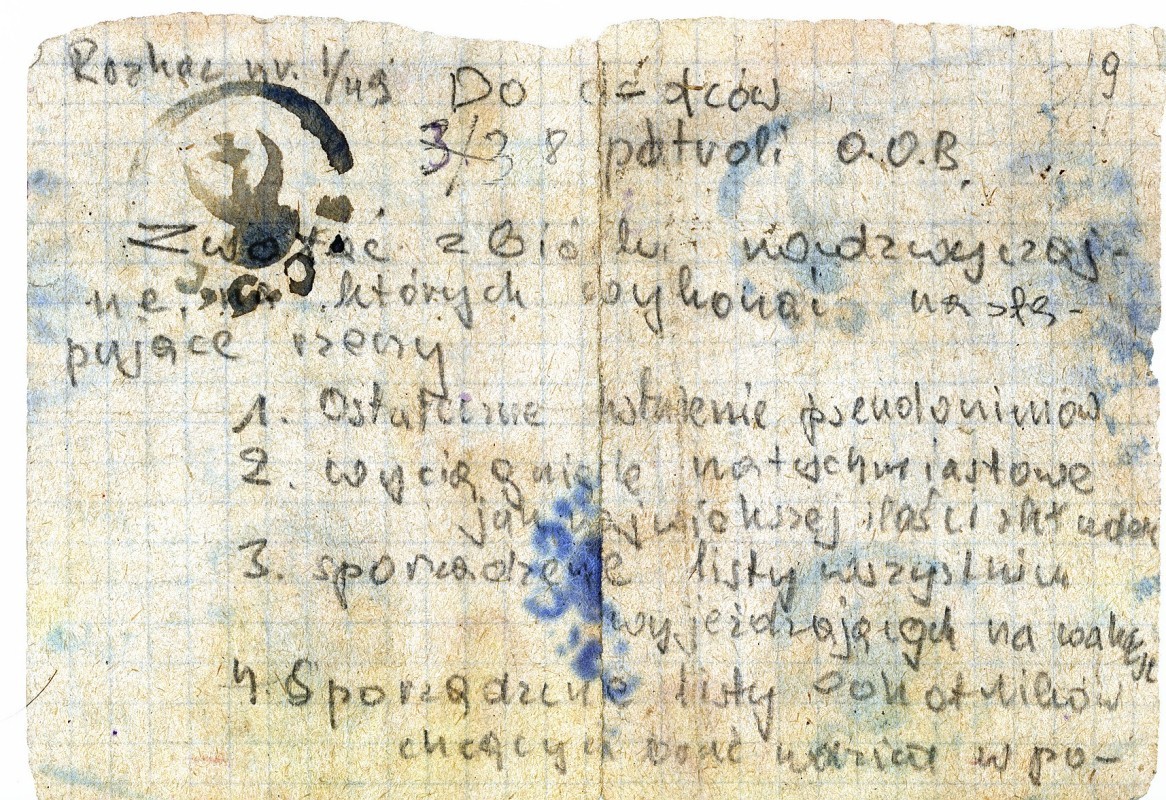 Rozkaz nr. 1/49
Do d-ctców
patroli O.O.B.
Zwołać zbiórki nadzwyczaj-
ne, na których wykonać nastę-
pujące rzeczy
1. Ostateczne ustalenie pseudonimów
2. wyciągnięcie natychmiastowe
jak największej ilości składek
3. sporządzenie listy wszystkich
wyjeżdzających na wakacje
4. Sporządzenie listy ochotników
chcących brać udział w po-